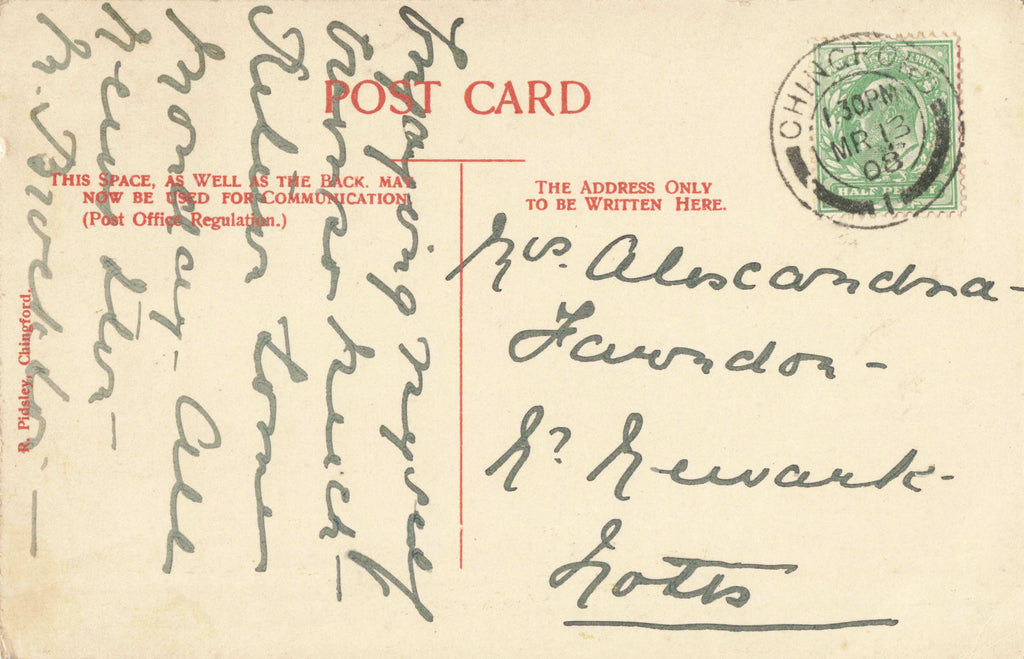 POST CARD
THIS SPACE, AS WELL AS THE BACK. MAY
NOW BE USED FOR COMMUNICATION
(Post Office Regulation.)
THE ADDRESS ONLY
TO BE WRITTEN HERE.
CHINGFORD
1.30PM
MR 13
08
1
HALF PENNY
R. Pidsley, Chingford.
Enjoying myself
here -
Return home
Monday - All
Mrs. Alexcandra -
Farndon -
Nr Newark -
Notts